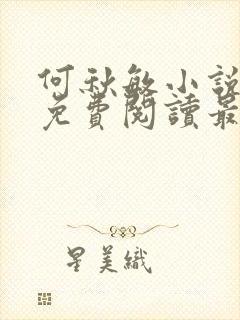 何秋敏小說
免費閱讀最
星美織